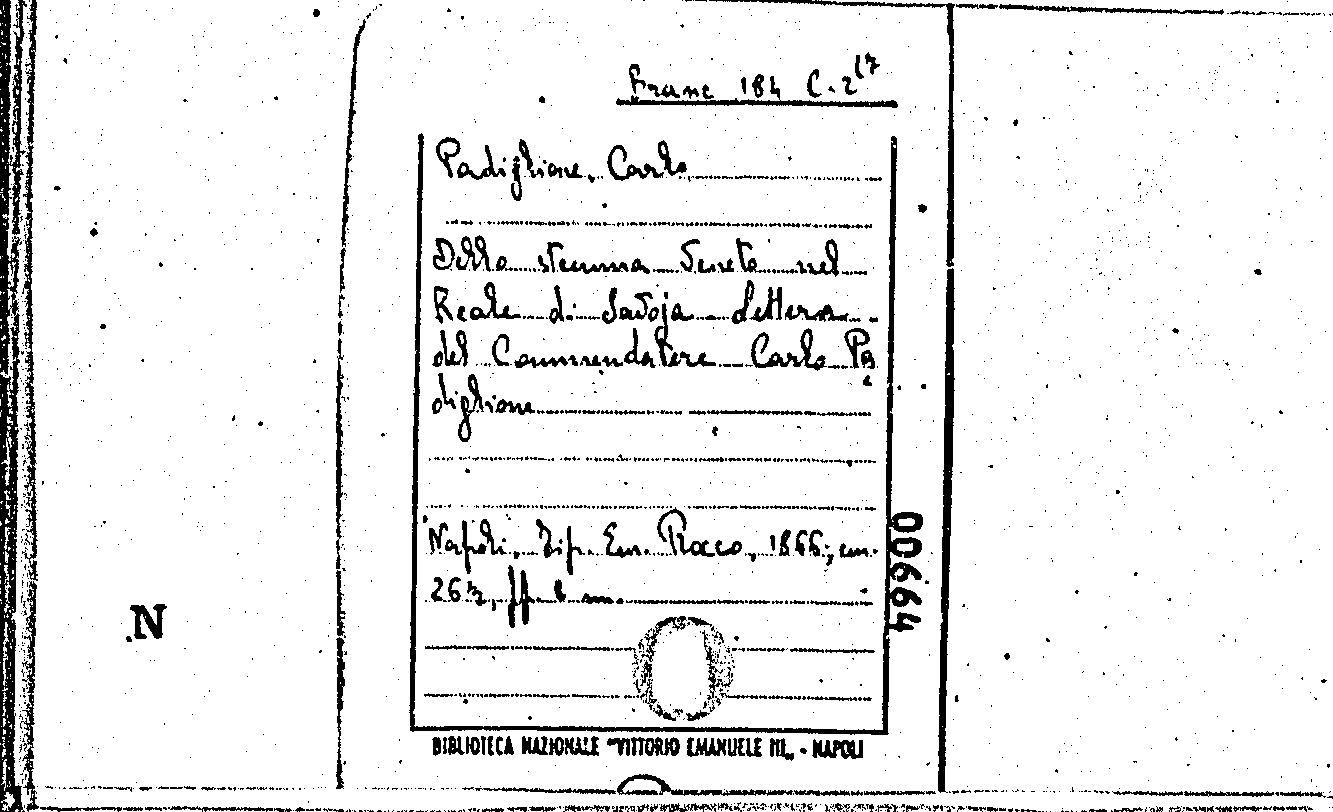 Branc 184 C. 2(7
Padiglione, Carlo
Dello stemma Veneto nel
Reale di Savoja Lettera
del Commendatore Carlo Pa
diglione
Napoli, Tip. Em. Rocco, 1866; cm.
26½, pp. 8 m.
00664
N
BIBLIOTECA NAZIONALE "VITTORIO EMANUELE III„ - NAPOLI